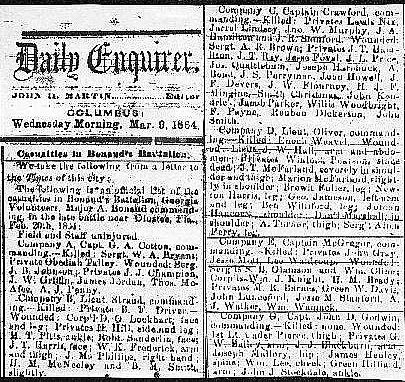 Daily Enquirer.
JOHN H. MARTIN, Editor
COLUMBUS:
Wednesday Morning, Mar. 9, 1864.
Casualties in Bonaud's Battalion.
We take the following from a letter to
the Times of this city.
The following is an official list of the
casualties in Bonaud's Battalion, Georgia
Volunteers, Major A. Bonaud command-
ing, in the late battle near Olustee, Fla.,
Feb. 20th, 1864:
Field and Staff uninjured.
Company A, Capt. G. A. Cotton, com-
manding.—Killed: Sergt. W. A. Bryans;
Private Obediah Talley. Wounded: Sergt.
J. B. Johnson; Privates J. J. Chancy,
J. W. Griffin, James Jordan, Thos. Mc-
Afee, A. J. Penny.
Company B, Lieut. Strand, command-
ing.—Killed: Private B. F. Driver.—
Wounded: Corp'l D. O. Lockhart, face
and leg; Privates H. Hill, side and leg;
M. T. Pitts, ankle; Robt. Sanderlin, face;
J. T. Garris, face; W. K. Frederick, arm
and thigh; J. M. Phillips, right hand;
H. M. McNeeley and B. R. Smith,
slightly.
Company C, Captain Crawford, com-
manding.—Killed: Privates Lewis Nix,
Jarrol Lindsey, Jno. W. Murphy, J. A.
Hamilton and J. R. Stanford. Wounded:
Sergt. A. R. Brown; Privates J. T. Ham-
ilton, J. T. Ray, J. L. Price,
Jo. Quattlebum, Joseph
Bond, J. S. Perryman, John Howell, J.
F. Jevers, J. W. Flournoy, H. A. F.
John
Jacob Parker, Willis Woodbright,
F. Payne, Reuben Dickerson, John
Smith.
Company D, Lieut. Oliver, command-
ing.—Killed: from Weaver. Wound-
ed: W. Hall, arm and abdo-
men; Privates Winton Pearson, since
dead; J. T. McFarland, severely in shoul-
der and thigh; Marion McFarland, slight-
ly in shoulder; Brown Fuller, leg; New-
ton Harris, leg; Geo. Jamison, left hand
and leg; Ben Williford, leg;
shoulder; Marshall,
shoulder; A. Turner, thigh; Serg't Allen
Perry, leg.
Company E, Captain McGregor, com-
manding.—Killed: Private John Gray.
Wounded:
Serg'ts N. B. Glanson and Wm. Oliver;
Corp'ls Wm. J. Knight, H. M. Brady;
Privates F. R. Barnes, Green W. David,
John Lunceford, Jesse M. Stanford, J.
J. Walker, Wm. Wanner.
Company G, Capt. John D. Godwin,
commanding.—Killed: none. Wounded:
1st Lt. Vader Pierce, thigh; Privates G.
W. Bally, arm; N. J. Brock, arm;
Joseph Mallory, hip; James Healey,
spine; Wm. Lee, cheek; Green Hilliard,
arm; John J. Stockdale, ankle.